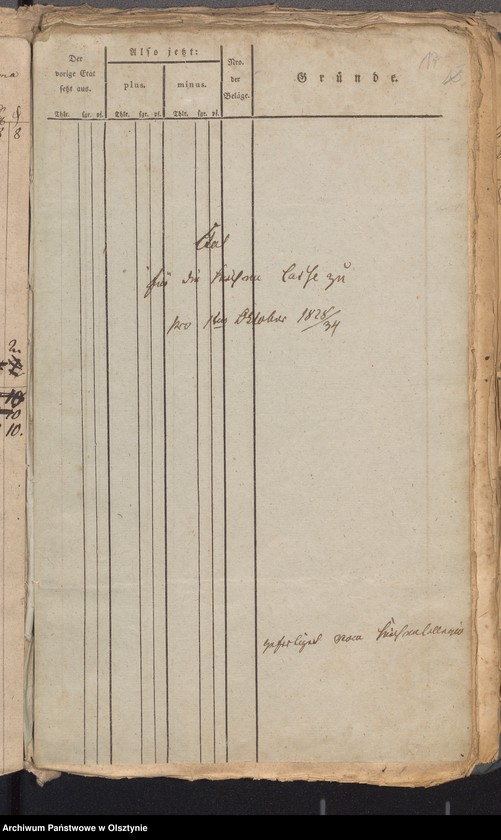 Der
vorige Etat
setzt aus.
Thlr. sgr. pf.
Also jetzt:
plus.
minus.
Thlr. sgr. pf.
Thlr. sgr. pf.
Nro.
der
Beläge.
Gründe.
Etat
für die Kirchen Casse zu
pro 1ten Oktober 1828/34
gefertiget vom Kirchencollegio
8 8
10
10.
Archiwum Państwowe w Olsztynie